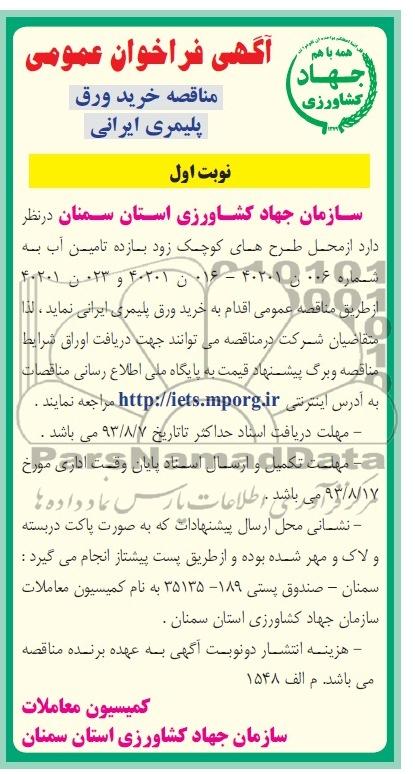 همه با هم
جهاد
کشاورزی
۱۳۷۹
آگهی فراخوان عمومی
مناقصه خرید ورق
پلیمری ایرانی
نوبت اول
سازمان جهاد کشاورزی استان سمنان درنظر
دارد ازمحل طرح های کوچک زود بازده تامین آب به
شماره ۰۰۶ ن ۴۰۲۰۱ – ۰۱۶ ن ۴۰۲۰۱ و ۰۲۳ ن ۴۰۲۰۱
ازطریق مناقصه عمومی اقدام به خرید ورق پلیمری ایرانی نماید ، لذا
متقاضیان شرکت درمناقصه می توانند جهت دریافت اوراق شرایط
مناقصه وبرگ پیشنهاد قیمت به پایگاه ملی اطلاع رسانی مناقصات
به آدرس اینترنتی http://iets.mporg.ir مراجعه نمایند .
– مهلت دریافت اسناد حداکثر تاتاریخ ۹۳/۸/۷ می باشد .
– مهلت تکمیل و ارسال اسناد پایان وقت اداری مورخ
۹۳/۸/۱۷ می باشد .
– نشانی محل ارسال پیشنهادات که به صورت پاکت دربسته
و لاک و مهر شده بوده و ازطریق پست پیشتاز انجام می گیرد :
سمنان – صندوق پستی ۱۸۹- ۳۵۱۳۵ به نام کمیسیون معاملات
سازمان جهاد کشاورزی استان سمنان .
– هزینه انتشار دونوبت آگهی به عهده برنده مناقصه
می باشد. م الف ۱۵۴۸
کمیسیون معاملات
سازمان جهاد کشاورزی استان سمنان
ParsNamadData
مرکز فرآوری اطلاعات پارس نماد داده ها